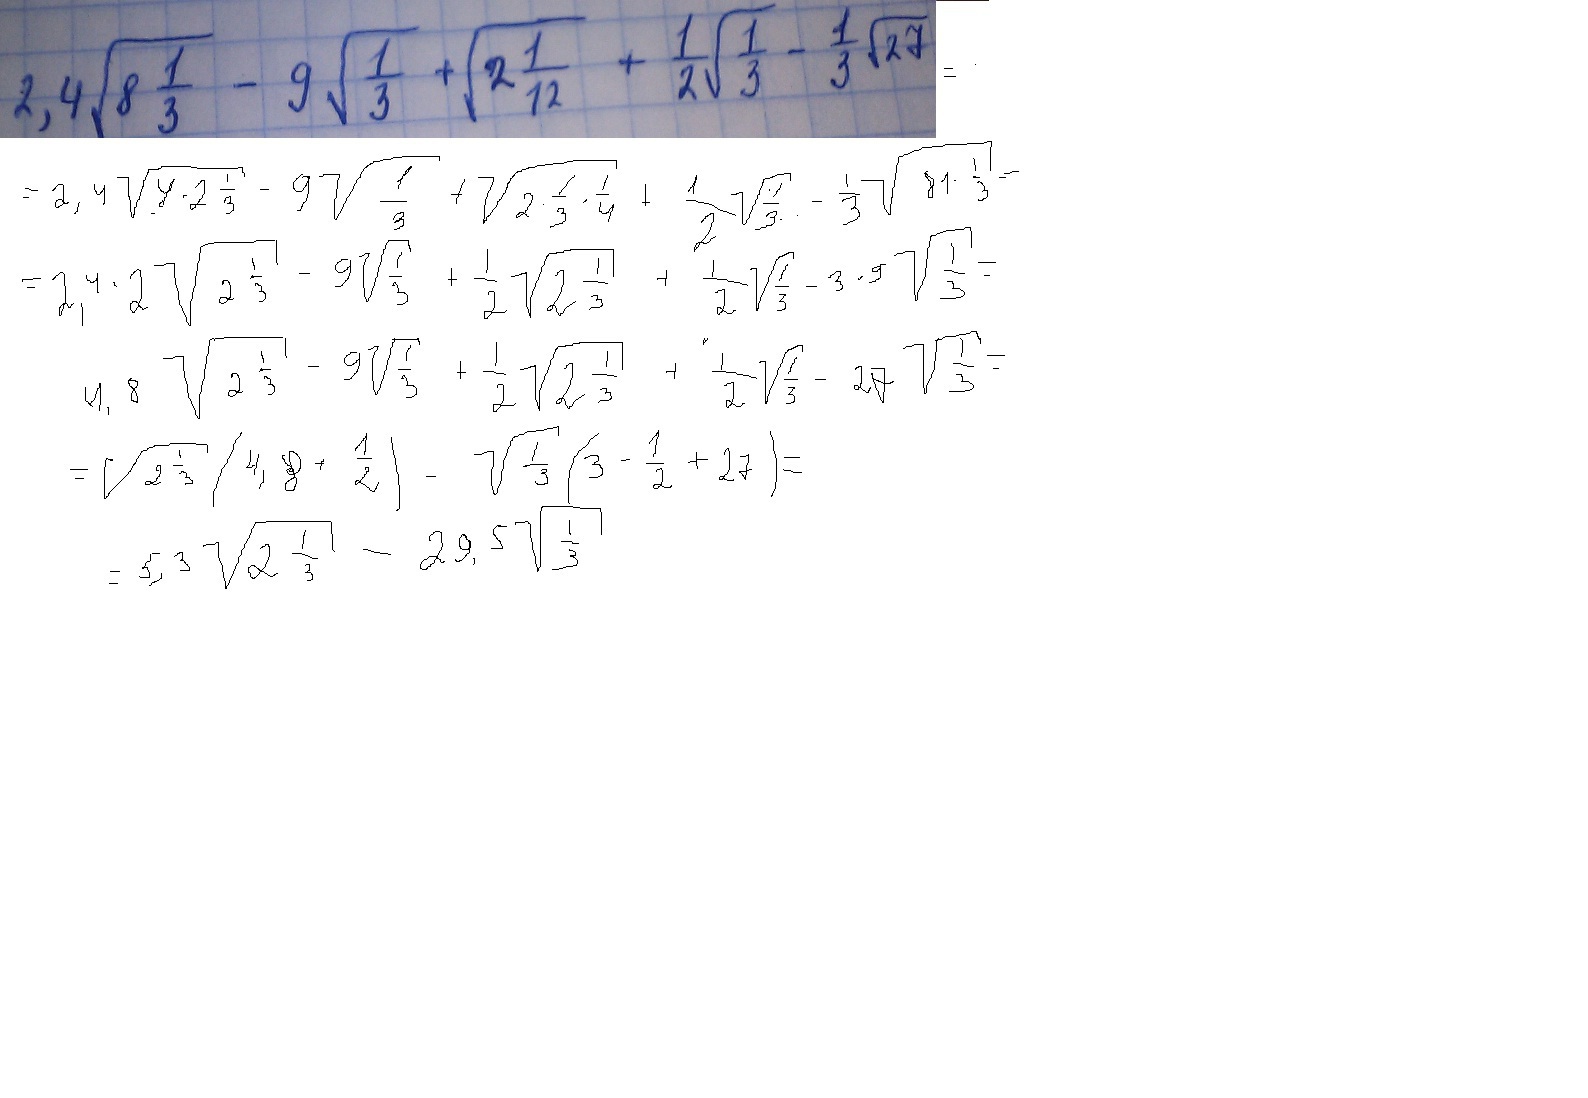 2,4√(8 1/3) - 9√(1/3) + √(2 1/12) + 1/2√(1/3) - 1/3√27 =
= 2,4√(4·2 1/3) - 9√(1/3) + √(2·1/3·1/4) + 1/2√(1/3) - 1/3√(81·1/3) =
= 2,4·2√(2 1/3) - 9√(1/3) + 1/2√(2 1/3) + 1/2√(1/3) - 3·9√(1/3) =
4,8√(2 1/3) - 9√(1/3) + 1/2√(2 1/3) + 1/2√(1/3) - 27√(1/3) =
= √(2 1/3)(4,8 + 1/2) - √(1/3)(3 - 1/2 + 27) =
= 5,3√(2 1/3) - 29,5√(1/3)